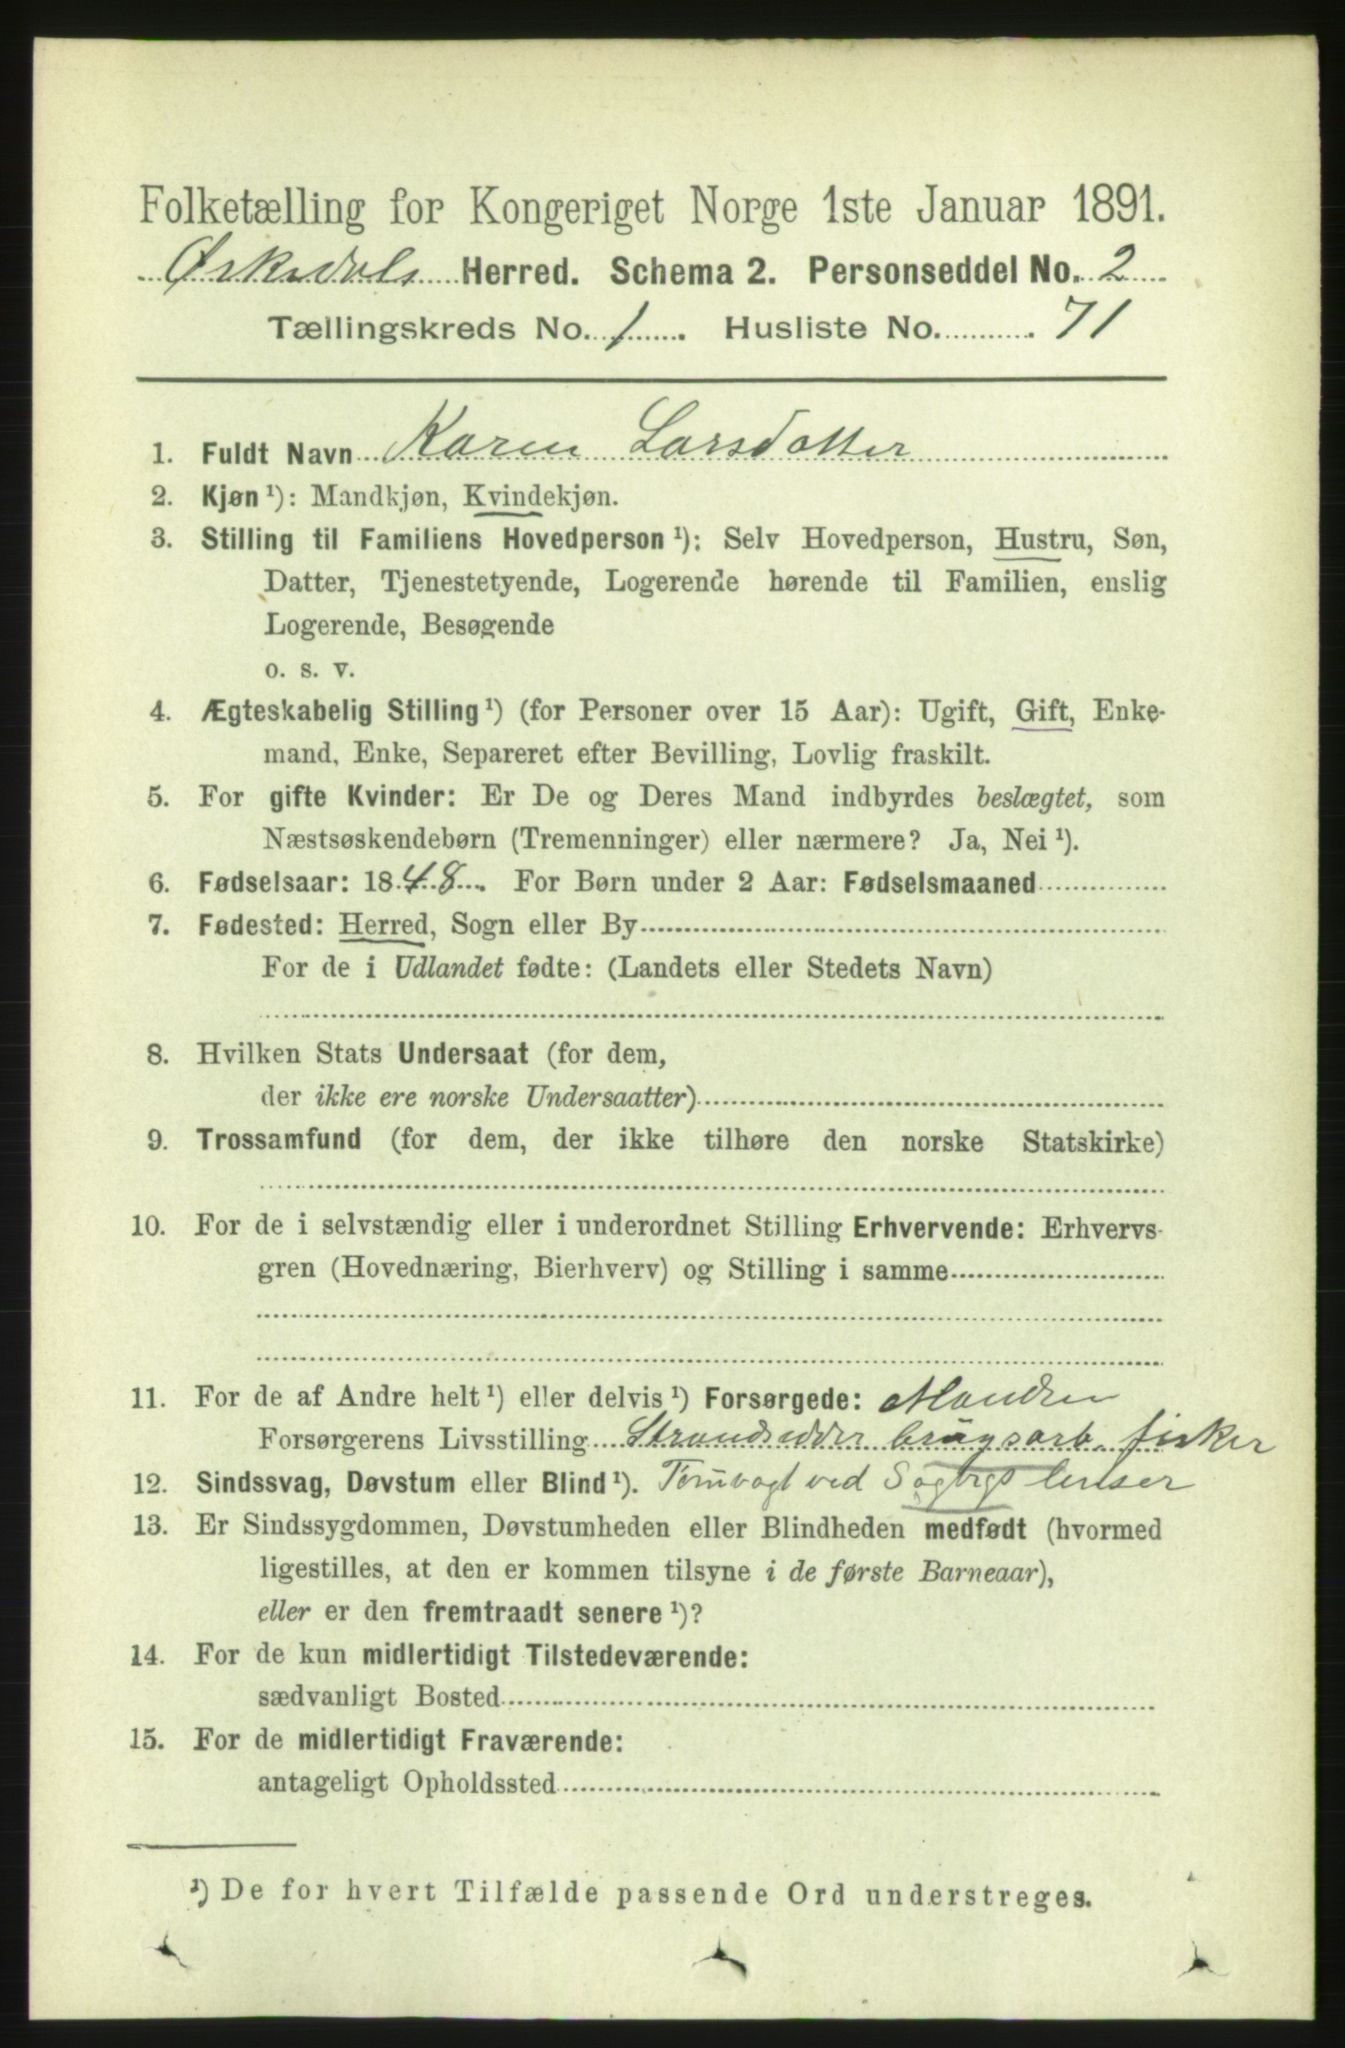 Folketælling for Kongeriget Norge 1ste Januar 1891.
Ørkedals Herred. Schema 2. Personseddel No. 2
Tællingskreds No. 1. Husliste No. 71
1. Fuldt Navn Karen Larsdatter
2. Kjøn ¹): Mandkjøn, Kvindekjøn.
3. Stilling til Familiens Hovedperson ¹): Selv Hovedperson, Hustru, Søn,
Datter, Tjenestetyende, Logerende hørende til Familien, enslig
Logerende, Besøgende
o. s. v.
4. Ægteskabelig Stilling ¹) (for Personer over 15 Aar): Ugift, Gift, Enke-
mand, Enke, Separeret efter Bevilling, Lovlig fraskilt.
5. For gifte Kvinder: Er De og Deres Mand indbyrdes beslægtet, som
Næstsøskendebørn (Tremenninger) eller nærmere? Ja, Nei ¹).
6. Fødselsaar: 1848. For Børn under 2 Aar: Fødselsmaaned
7. Fødested: Herred, Sogn eller By
For de i Udlandet fødte: (Landets eller Stedets Navn)
8. Hvilken Stats Undersaat (for dem,
der ikke ere norske Undersaatter)
9. Trossamfund (for dem, der ikke tilhøre den norske Statskirke)
10. For de i selvstændig eller i underordnet Stilling Erhvervende: Erhvervs-
gren (Hovednæring, Bierhverv) og Stilling i samme
11. For de af Andre helt ¹) eller delvis ¹) Forsørgede: Manden
Forsørgerens Livsstilling Strandsidder brugsarb. fisker
12. Sindssvag, Døvstum eller Blind ¹). ved Sagbrgs lenser
13. Er Sindssygdommen, Døvstumheden eller Blindheden medfødt (hvormed
ligestilles, at den er kommen tilsyne i de første Barneaar),
eller er den fremtraadt senere ¹)?
14. For de kun midlertidigt Tilstedeværende:
sædvanligt Bosted
15. For de midlertidigt Fraværende:
antageligt Opholdssted
¹) De for hvert Tilfælde passende Ord understreges.